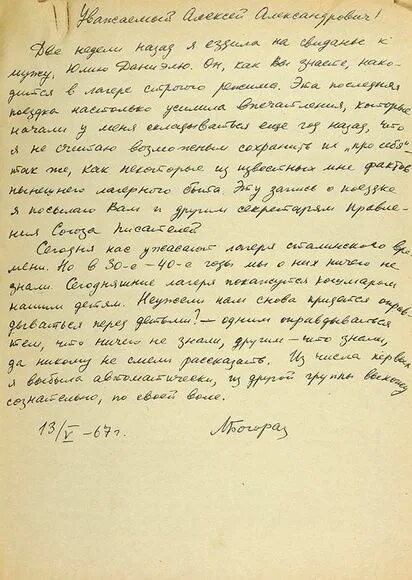 Уважаемый Алексей Александрович!
Две недели назад я ездила на свиданье к
мужу, Юлию Даниэлю. Он, как Вы знаете, нахо-
дится в лагере строгого режима. Эта последняя
поездка настолько усилила впечатления, которые
начали у меня складываться еще год назад, что
я не считаю возможным сохранить их "про себя"
так же, как некоторые из известных мне фактов
нынешнего лагерного быта. Эту запись о поездке
я посылаю Вам и другим секретарям Правле-
ния Союза писателей.
Сегодня нас ужасают лагеря сталинского вре-
мени. Но в 30-е - 40-е годы мы о них ничего не
знали. Сегодняшние лагеря покажутся кошмаром
нашим детям. Неужели нам снова придется оправ-
дываться перед детьми? - одним оправдываться
тем, что ничего не знали, другим - что знали,
да никому не смели рассказать. Из числа первых
я выбыла автоматически, из другой группы выхожу
сознательно, по своей воле.
13/V -67г. ЛБогораз